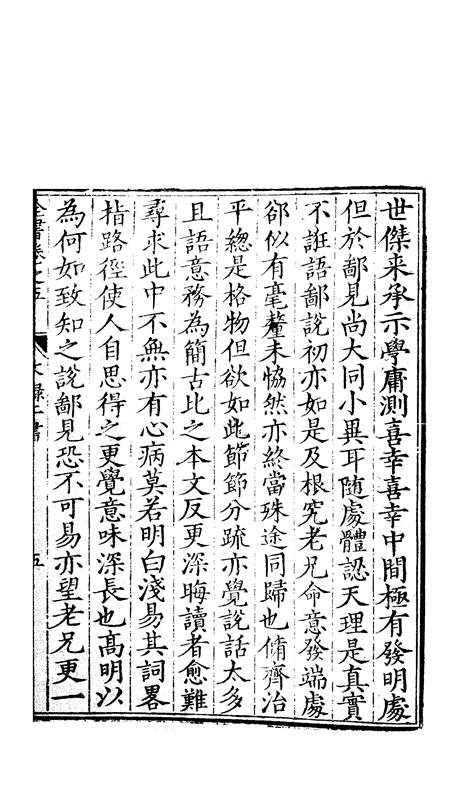 世傑来承示學庸測喜幸喜幸中間極有發明處
但於鄙見尚大同小異耳随處體認天理是真實
不誑語鄙說初亦如是及根究老兄命意發端處
卻似有毫釐未恊然亦終當殊途同歸也脩齊治
平緫是格物但欲如此節節分疏亦覺說話太多
且語意務為簡古比之本文反更深晦讀者愈難
尋求此中不無亦有心病莫若明白淺易其詞畧
指路徑使人自思得之更覺意味深長也髙明以
為何如致知之說鄙見恐不可易亦望老兄更一
全書卷之五
文録二書
五